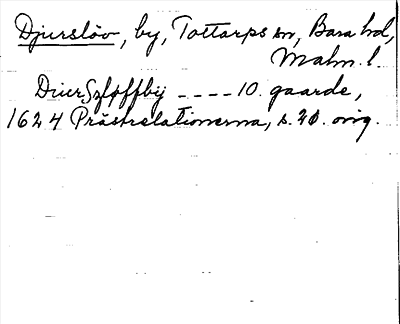 Djurslöv, by, Tottarps sn, Bara hd,
Malm. l.
DiierSzløffbÿ ---- 10. gaarde,
1624 Prästrelationerna, s. 20. orig.